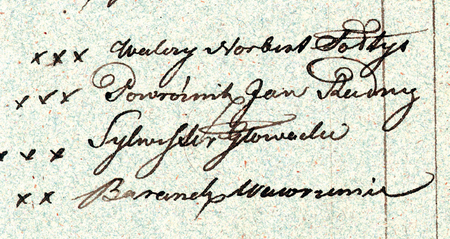 xxx Walery Norbert Sołtys
xxx Powróznik Jan Radny
xxx Sylwester Głowacki
xx Baranek Wawrzeniec